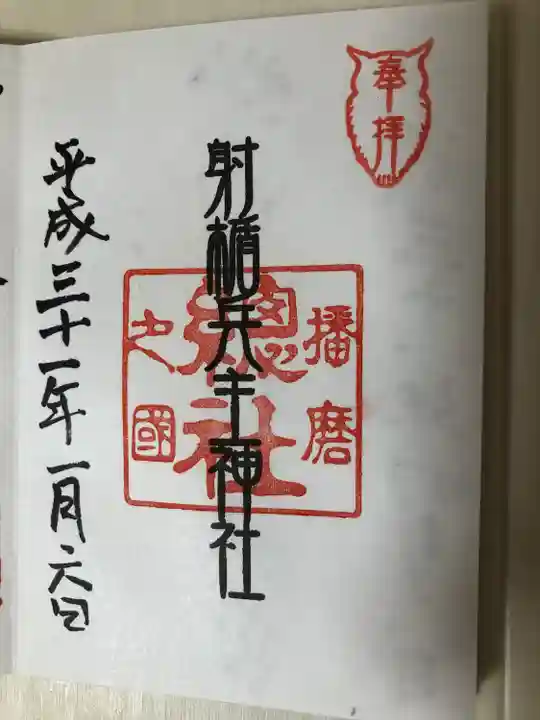 奉拝
播磨
之國
總社
射楯兵主神社
平成三十一年一月六日